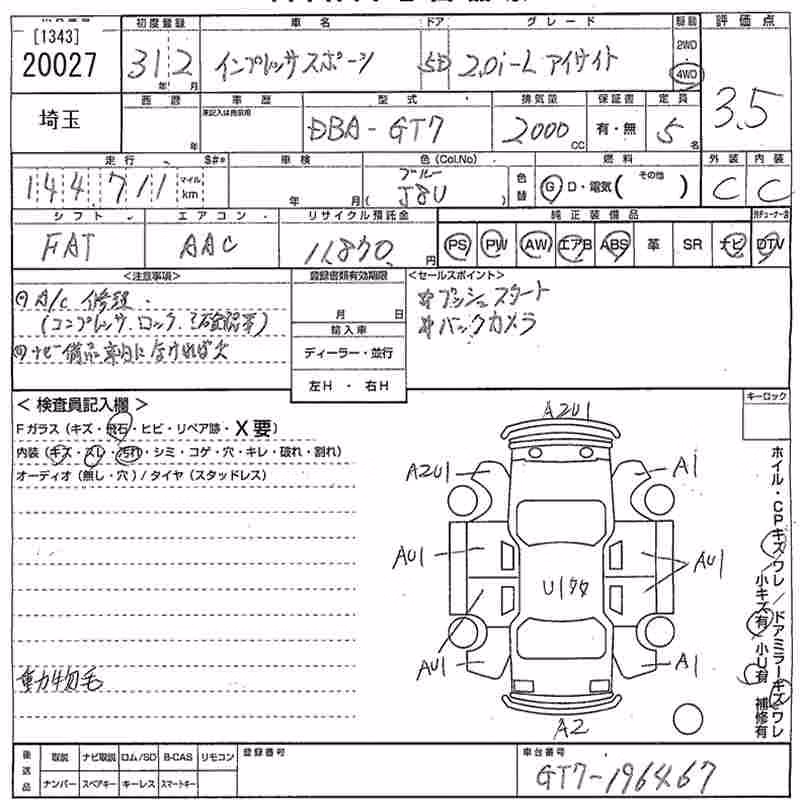 [1343]
20027
初度登録 車名 ドア グレード 駆動 評価点
31年 2月 インプレッサスポーツ 5D 2.0i-L アイサイト 2WD 4WD 3.5
埼玉
西暦 車歴 型式 排気量 保証書 定員
年 未記入は自家用 DBA-GT7 2000 CC 有・無 5名
走行 S#* 車検 色(Col.No) 燃料 外装 内装
144,711 マイル km 年 月 ブルー ( J8U ) 色替 G D・電気( その他 ) C C
シフト エアコン リサイクル預託金 純正装備品
FAT AAC 11,870円 PS PW AW エアB ABS 革 SR ナビ DTV
<注意事項> 登録書類有効期限 <セールスポイント>
A/C 修理.
(コンプレッサ.ロック.
ナビ備品 に なければ欠
月 日
輸入車
ディーラー・並行
左H ・ 右H
※プッシュスタート
※バックカメラ
<検査員記入欄> キーロック
Fガラス(キズ・飛石・ヒビ・リペア跡・X要)
内装(キズ・スレ・汚れ・シミ・コゲ・穴・キレ・破れ・割れ)
オーディオ(無し・穴)/タイヤ(スタッドレス)
動物毛
A2U1
A2U1 A1
AU1 AU1
U1タタ
AU1 A1
A2
ホイル・CPキズワレ/ドアミラーキズワレ
小キズ有 小U有 補修有
後送品 取説 ナビ取説 ロム/SD B-CAS リモコン 登録番号 車台番号
ナンバー スペアキー キーレス スマートキー GT7-196467